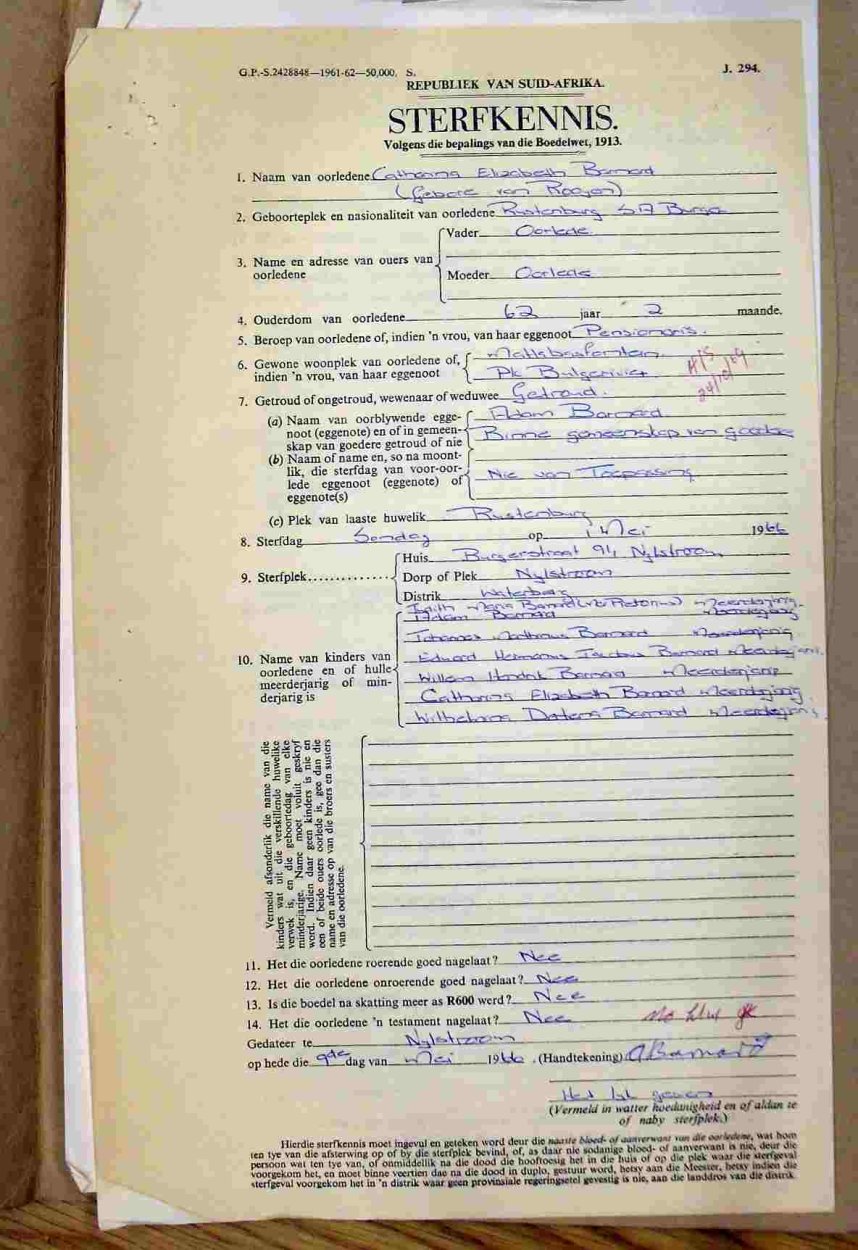 G.P.-S.2428848—1961-62—50,000. S.
J. 294.
REPUBLIEK VAN SUID-AFRIKA.
STERFKENNIS.
Volgens die bepalings van die Boedelwet, 1913.
1. Naam van oorledene Catharina Elizabeth Barnard
(Gebore van Rooyen)
2. Geboorteplek en nasionaliteit van oorledene Rustenburg SA Burger
3. Name en adresse van ouers van oorledene
Vader Oorlede
Moeder Oorlede
4. Ouderdom van oorledene 62 jaar 2 maande.
5. Beroep van oorledene of, indien 'n vrou, van haar eggenoot Pensionaris.
6. Gewone woonplek van oorledene of, indien 'n vrou, van haar eggenoot
Pk
7. Getroud of ongetroud, wewenaar of weduwee Getroud.
(a) Naam van oorblywende eggenoot (eggenote) en of in gemeenskap van goedere getroud of nie
Adam Barnard
Binne gemeenskap van goedere
(b) Naam of name en, so na moontlik, die sterfdag van voor-oorlede eggenoot (eggenote) of eggenote(s)
Nie van Toepassing
(c) Plek van laaste huwelik Rustenburg
8. Sterfdag Sondag op 1 Mei 1966
9. Sterfplek
Huis Burgerstraat 94 Nylstroom
Dorp of Plek Nylstroom
Distrik Waterberg
10. Name van kinders van oorledene en of hulle meerderjarig of minderjarig is
Maria Barnard Meerderjarig
Adam Barnard Meerderjarig
Johannes Barnard Meerderjarig
Eduard Hermanus Jacobus Barnard Meerderjarig
Willem Hendrik Barnard Meerderjarig
Catharina Elizabeth Barnard Meerderjarig
Barnard Meerderjarig
Vermeld afsonderlik die name van die
kinders wat uit die verskillende huwelike
verwek is, en die geboortedag van elke
minderjarige. Name moet voluit geskryf
word. Indien daar geen kinders is nie en
een of beide ouers oorlede is, gee dan die
name en adresse op van die broers en susters
van die oorledene.
11. Het die oorledene roerende goed nagelaat? Nee
12. Het die oorledene onroerende goed nagelaat? Nee
13. Is die boedel na skatting meer as R600 werd? Nee
14. Het die oorledene 'n testament nagelaat? Nee
Gedateer te Nylstroom
op hede die 9de dag van Mei 1966. (Handtekening) ABarnard
(Vermeld in watter hoedanigheid en of aldan te
of naby sterfplek.)
Hierdie sterfkennis moet ingevul en geteken word deur die naaste bloed- of aanverwant van die oorledene, wat hom
ten tye van die afsterwing op of by die sterfplek bevind, of, as daar nie sodanige bloed- of aanverwant is nie, deur die
persoon wat ten tye van, of onmiddellik na die dood die hooftoesig het in die huis of op die plek waar die sterfgeval
voorgekom het, en moet binne veertien dae na die dood in duplo, gestuur word, hetsy aan die Meester, hetsy indien die
sterfgeval voorgekom het in 'n distrik waar geen provinsiale regeringsetel gevestig is nie, aan die landdros van die distrik.